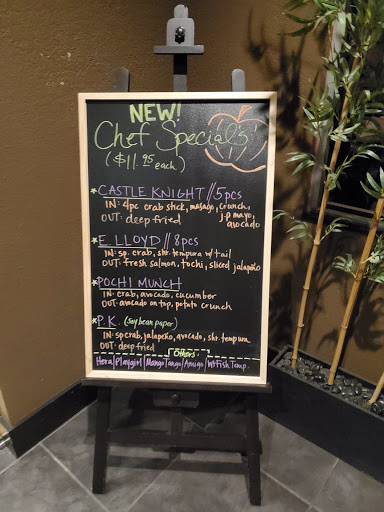 NEW!
Chef Special's!
($11.95 each)
*CASTLE KNIGHT//5pcs
IN: 4pc crab stick, masago, crunch,
OUT: deep fried j.p mayo,
avocado
*E. LLOYD // 8pcs
IN: sp. crab, shr. tempura w/tail
OUT: fresh salmon, tochi, sliced jalapeño
*POCHI MUNCH
IN: crab, avocado, cucumber
OUT: avocado on top, potato crunch
*P.K. (soy bean paper)
IN: sp crab, jalapeño, avocado, shr. tempura
OUT: deep fried
Others:
Hera/Playgirl/Mango Tango/Amigo/Wt Fish Temp.